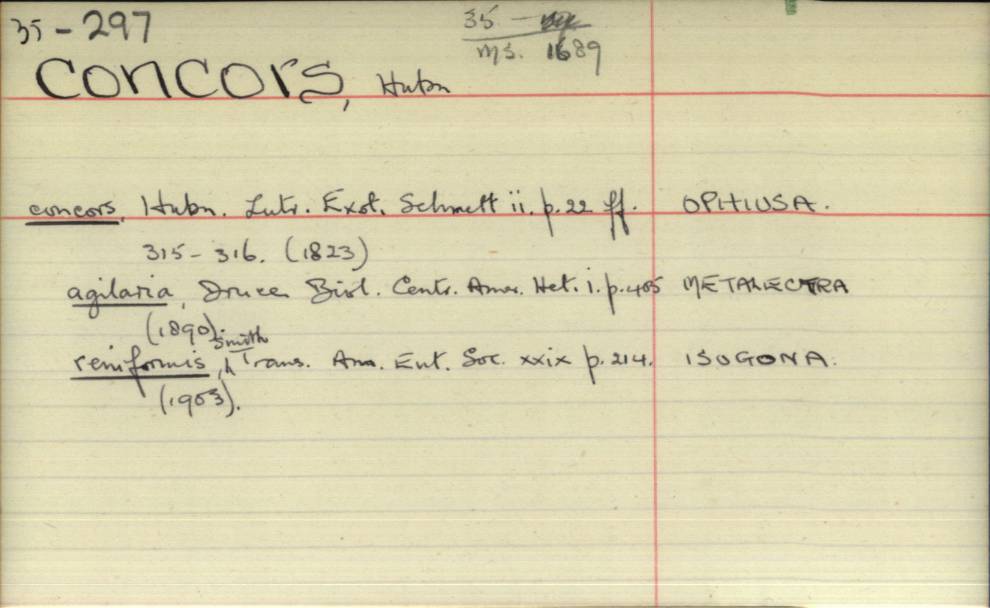 35-297
35 -
ms. 1689
concors, Hubn
concors, Hubn. Zutr. Exot. Schmett ii. p.22 ff. OPHIUSA.
315-316. (1823)
agilaria, Druce Biol. Centr. Amer. Het. i. p.405 METALECTRA
(1890).
reniformis, Smith Trans. Am. Ent. Soc. xxix p.214. ISOGONA.
(1903).